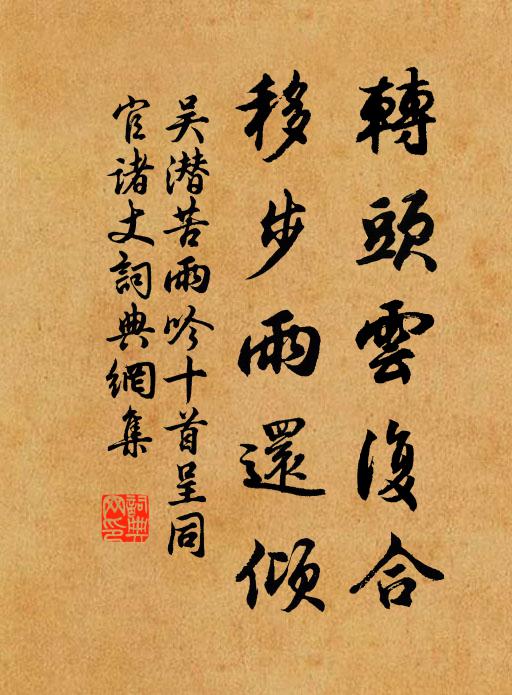 轉頭雲復合
移步雨還傾
吴潜苦雨吟十首呈同
官诸丈詞典網集
詞典网印